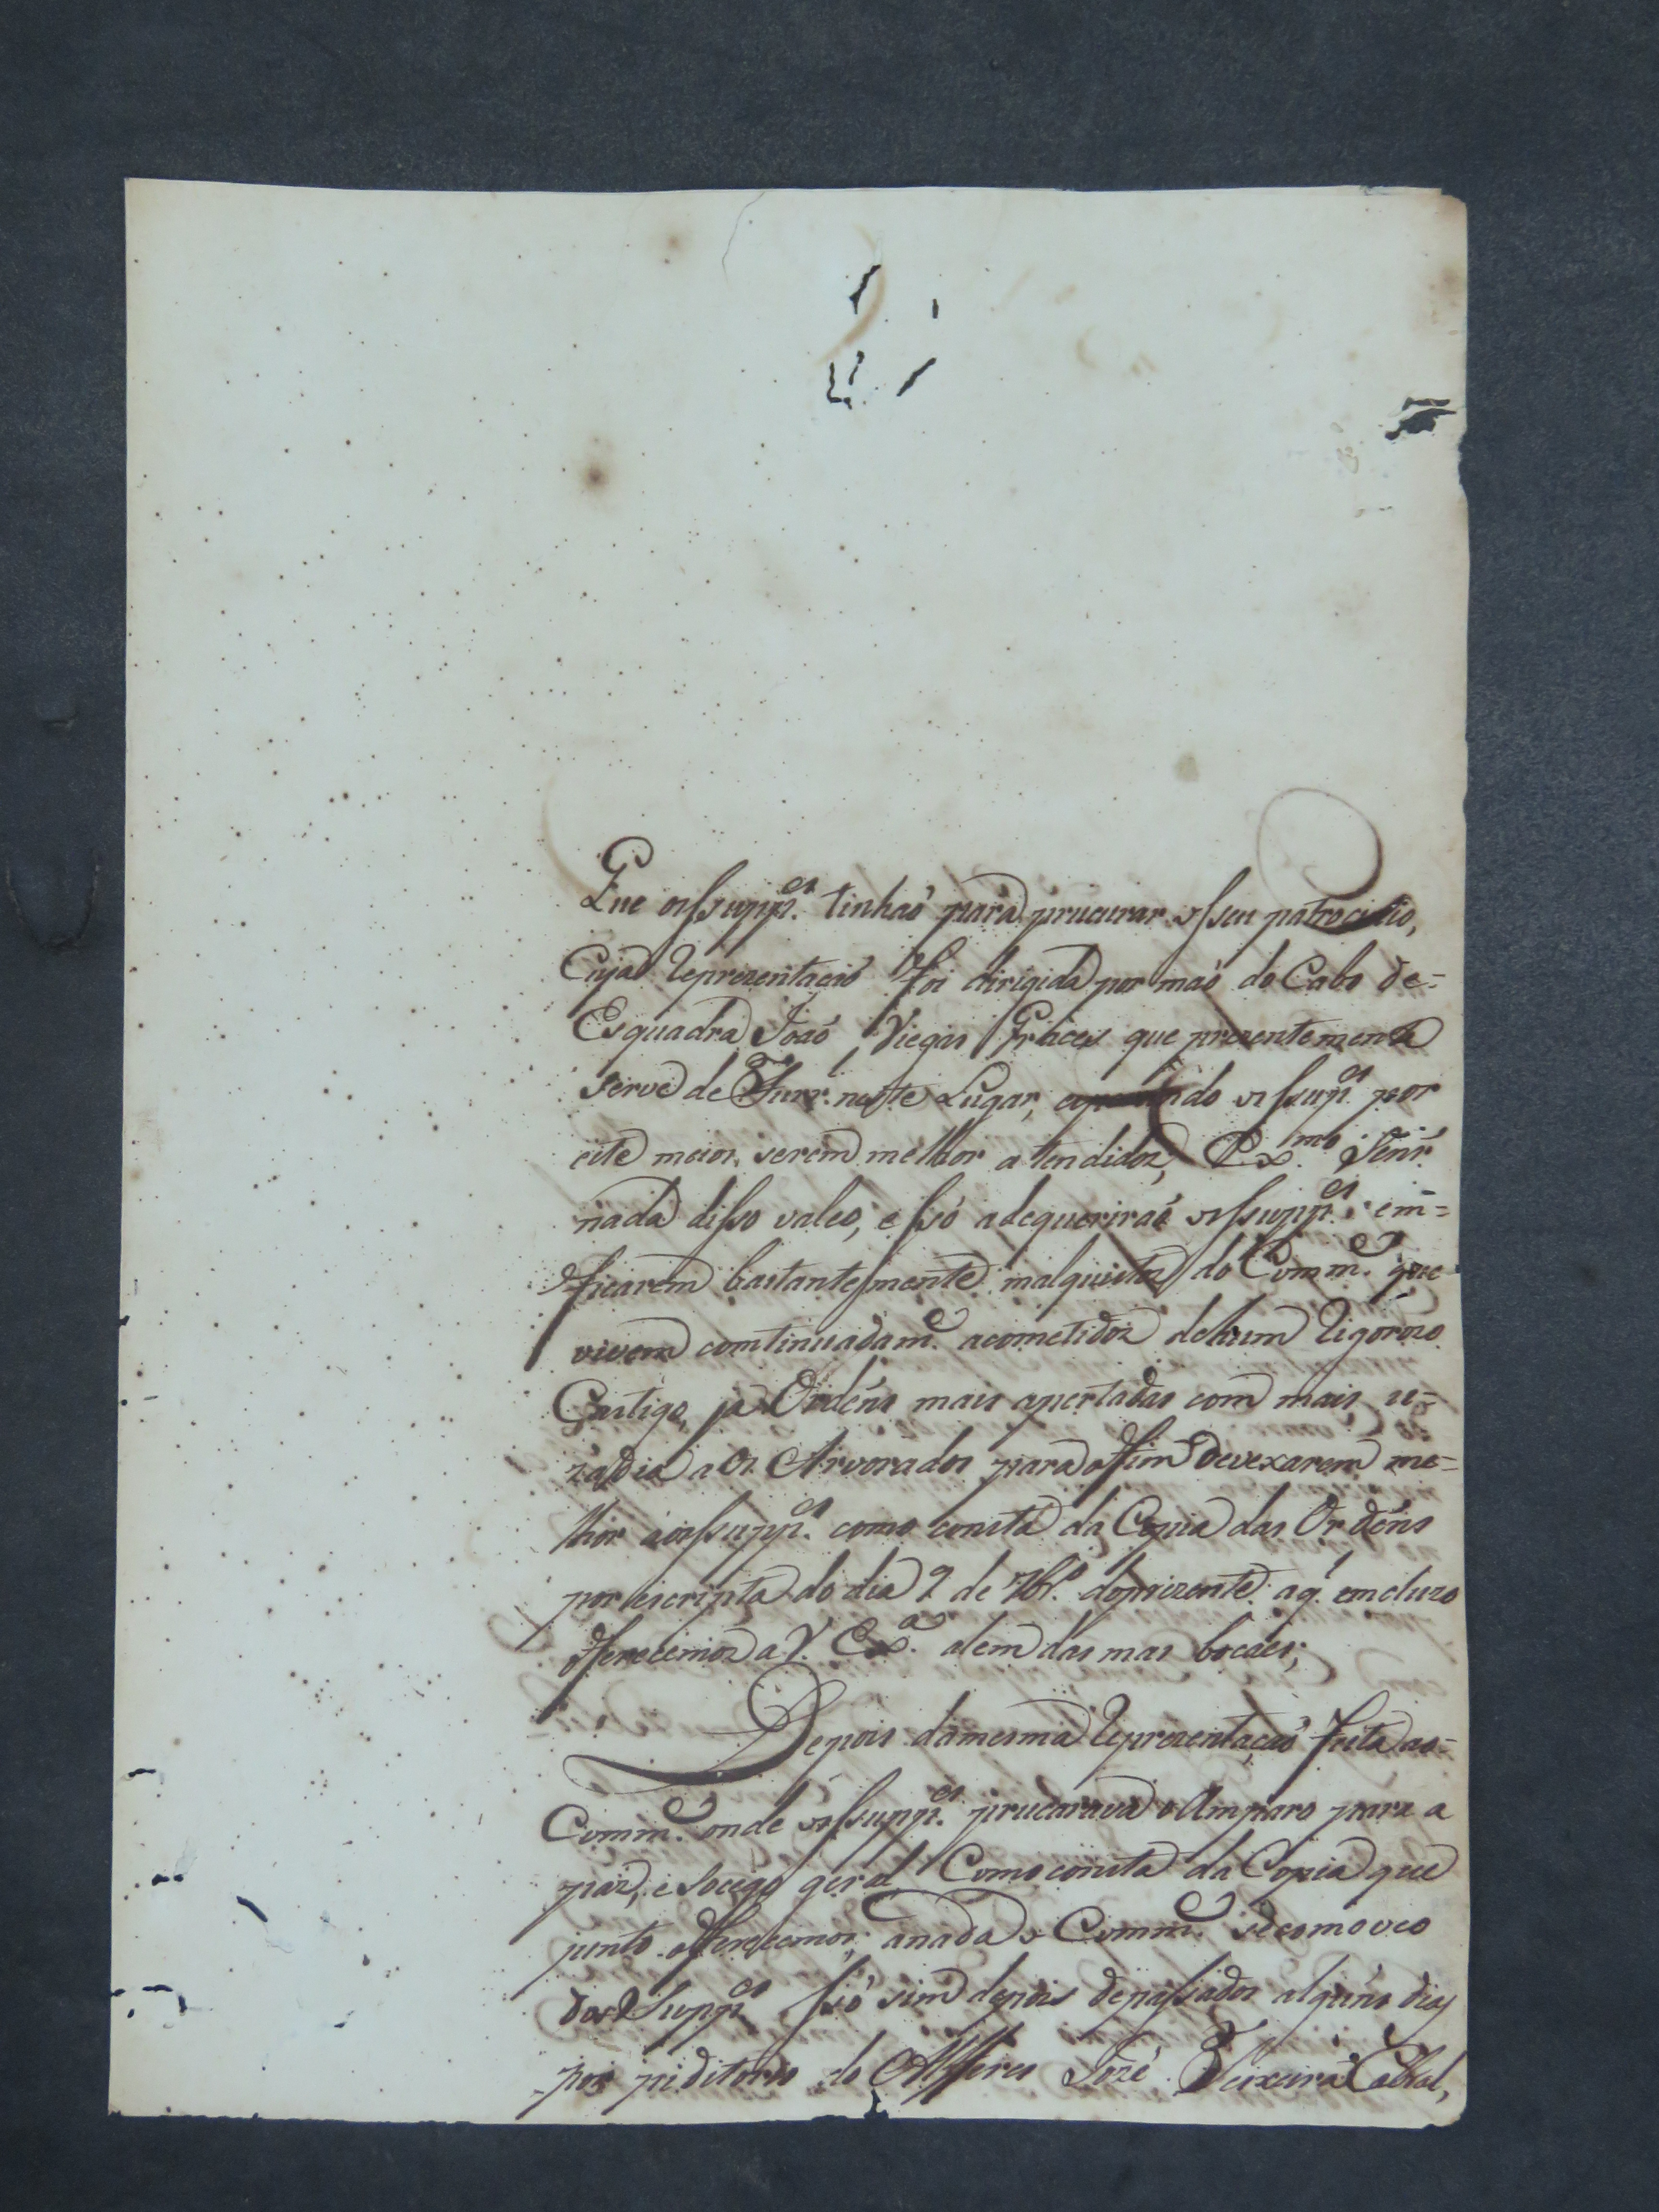 Que os supp.es tinhaõ para prucurar o seu patrocinio,
Cuja Reprezentaçiõ foi dirigida por maõ do Cabo de=
Esquadra Joaõ Viegas que prezentemente
serve de Furr. neste Lugar, do os sup.es por
este meios serem melhor a tendidos, Ex.mo Senr.
nada disso valeo, e só adequeriraõ os supp.es em=
ficarem bastantesmente malquistos do Comm.e que
vivem continuadam.e acometidos de hum Rigorozo
Castigo, ja Ordéns mais apertadas com mais
a os Arvorados para o fim de vexarem me=
lhor aos supp.es como consta da Copia das Ordéns
por escripta do dia 2 de 7br.o do prizente aq.' emcluzo
offerecemos a V. Ex.a alem das mas bocaes;
Depois da mesma Reprezentaçaõ feita ao=
Comm.e onde os supp.es prucarava o Amparo para a
paz, e Socego geral Como consta da Copia que
junto offerecemos; anada o Comm.e se comoveo
dos Supp.es só sim depois de passados alguns dias
por piditorio do Alferes Jozé Teixeira Cabral,